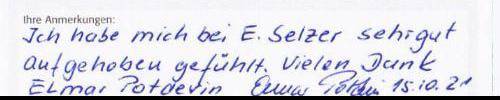 Ihre Anmerkungen:
Ich habe mich bei E. Selzer sehr gut
aufgehoben gefühlt. Vielen Dank
Elmar Potdevin Elmar Potdevin 15.10.21